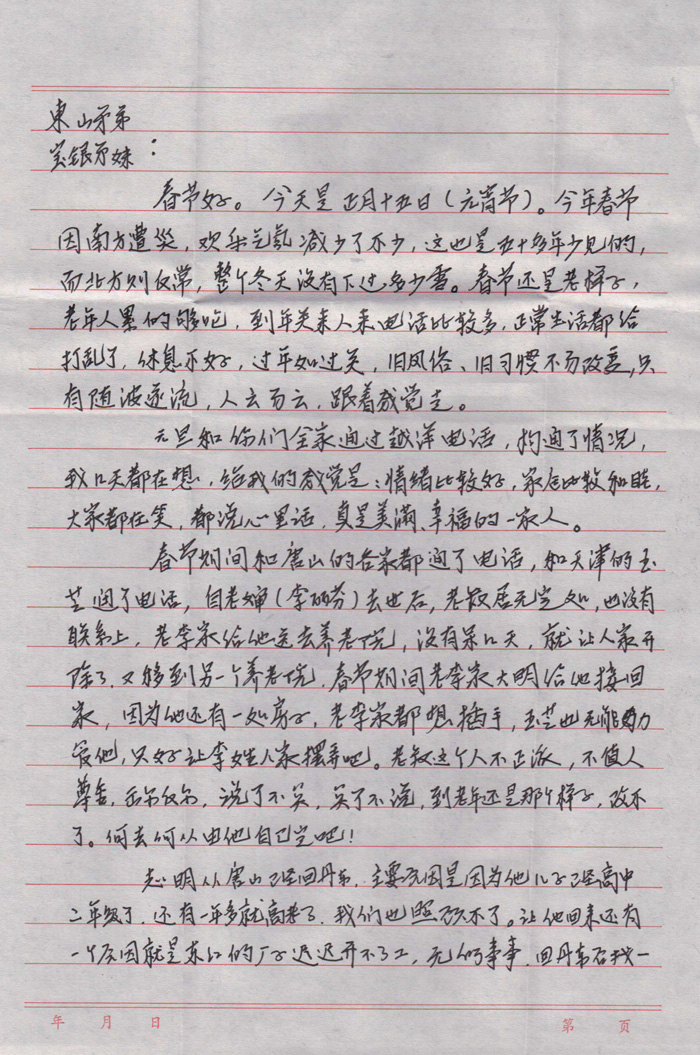 東山弟弟
宝银弟妹：
春节好。今天是正月十五日（元宵节）。今年春节
因南方遭災，欢乐气氛减少了不少，这也是五十多年少见的，
而北方则反常，整个冬天没有下过多少雪。春节还是老样子，
老年人累的够呛，到年关来人来电话比较多，正常生活都给
打乱了，休息不好，过年如过关，旧风俗、旧习惯不易改变，只
有随波逐流，人云而云，跟着感觉走。
元旦和你们全家通过越洋电话，沟通了情况，
我几天都在想，给我的感觉是：情绪比较好，家庭比较和睦，
大家都在笑，都说心里话，真是美满、幸福的一家人。
春节期间和唐山的各家都通了电话，和天津的玉
芝通了电话，自老婶（李丽芬）去世后，老叔居无定处，也没有
联系上，老李家给他送去养老院，没有呆几天，就让人家开
除了，又够到另一个养老院，春节期间老李家大明给他接回
家，因为他还有一处房子，老李家都想插手，玉芝也无能力
管他，只好让李姓人家摆弄吧。老叔这个人不正派，不值人
尊重，说了不实，实了不说，到老年还是那个样子，改不
了。何去何从由他自己定吧！
志明从唐山已经回丹东，主要原因是因为他儿子已经高中
二年级了，还有一年多就高考了，我们也照顾不了。让他回来还有
一个原因就是东江的厂子迟迟开不了工，无所事事，回丹东后找一
年 月 日
第 页